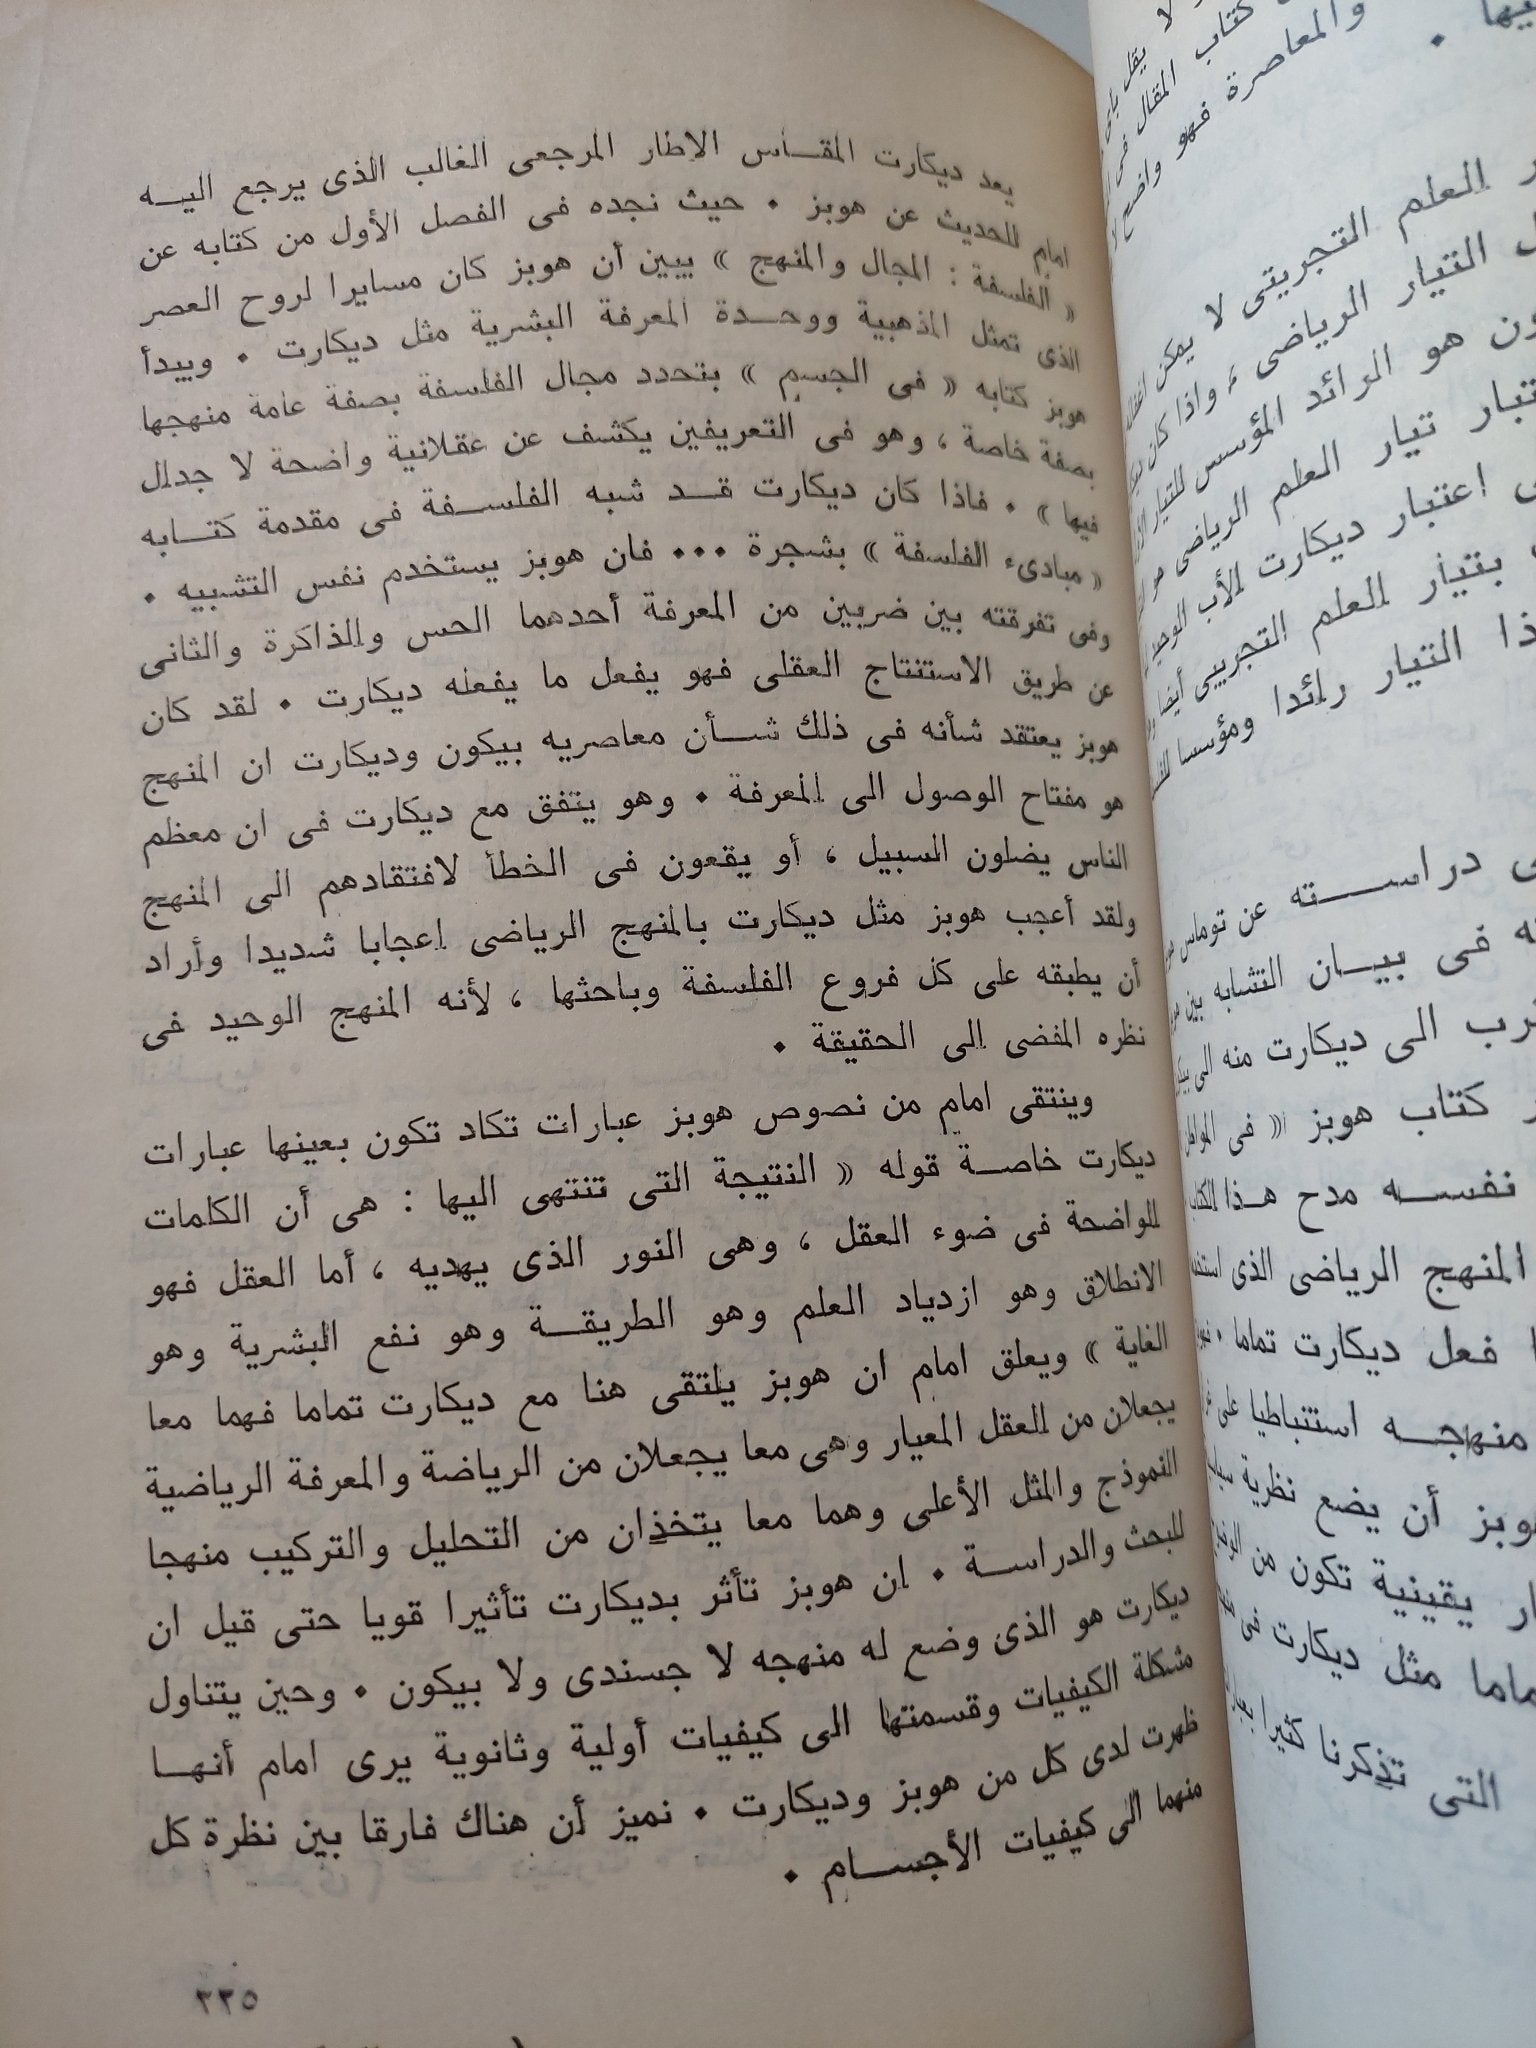 يعد ديكارت المقاس الاطار المرجعى الغالب الذى يرجع اليه
امام للحديث عن هوبز . حيث نجده فى الفصل الأول من كتابه عن
« الفلسفة : المجال والمنهج » يبين أن هوبز كان مسايرا لروح العصر
الذى تمثل المذهبية ووحدة المعرفة البشرية مثل ديكارت . ويبدأ
هوبز كتابه « فى الجسم » بتحدد مجال الفلسفة بصفة عامة منهجها
بصفة خاصة ، وهو فى التعريفين يكشف عن عقلانية واضحة لا جدال
فيها » . فاذا كان ديكارت قد شبه الفلسفة فى مقدمة كتابه
« مبادىء الفلسفة » بشجرة ... فان هوبز يستخدم نفس التشبيه .
وفى تفرقته بين ضربين من المعرفة أحدهما الحس والذاكرة والثانى
عن طريق الاستنتاج العقلى فهو يفعل ما يفعله ديكارت . لقد كان
هوبز يعتقد شأنه فى ذلك شأن معاصريه بيكون وديكارت ان المنهج
هو مفتاح الوصول الى المعرفة . وهو يتفق مع ديكارت فى ان معظم
الناس يضلون السبيل ، أو يقعون فى الخطأ لافتقادهم الى المنهج
ولقد أعجب هوبز مثل ديكارت بالمنهج الرياضى اعجابا شديدا وأراد
أن يطبقه على كل فروع الفلسفة وباحثها ، لأنه المنهج الوحيد فى
نظره المفضى الى الحقيقة .
وينتقى امام من نصوص هوبز عبارات تكاد تكون بعينها عبارات
ديكارت خاصة قوله « النتيجة التى تنتهى اليها : هى أن الكلمات
الواضحة فى ضوء العقل ، وهى النور الذى يهديه ، أما العقل فهو
الانطلاق وهو ازدياد العلم وهو الطريقة وهو نفع البشرية وهو
الغاية » ويعلق امام ان هوبز يلتقى هنا مع ديكارت تماما فهما معا
يجعلان من العقل المعيار وهى معا يجعلان من الرياضة والمعرفة الرياضية
النموذج والمثل الأعلى وهما معا يتخذان من التحليل والتركيب منهجا
للبحث والدراسة . ان هوبز تأثر بديكارت تأثيرا قويا حتى قيل ان
ديكارت هو الذى وضع له منهجه لا جسندى ولا بيكون . وحين يتناول
مشكلة الكيفيات وقسمتها الى كيفيات أولية وثانوية يرى امام أنها
ظهرت لدى كل من هوبز وديكارت . نميز أن هناك فارقا بين نظرة كل
منهما الى كيفيات الأجسام .
٢٣٥
فيها .
والمعاصرة فهو واضح
كتاب المقال فى
لا يقل
العلم التجريتى لا يمكن
التيار الرياضى ، واذا كان
هو الرائد المؤسس للتيار
تيار العلم الرياضى هو
اعتبار ديكارت الأب الوحيد
بتيار العلم التجريبى أيضا
التيار رائدا ومؤسسا
دراسته عن توماس
فى بيان التشابه بين
الى ديكارت منه الى
كتاب هوبز « فى
نفسه مدح هذا الكتاب
المنهج الرياضى الذى
فعل ديكارت تماما .
منهجه استنباطيا على
أن يضع نظرية
يقينية تكون من
مثل ديكارت فى
التى تذكرنا كثيرا